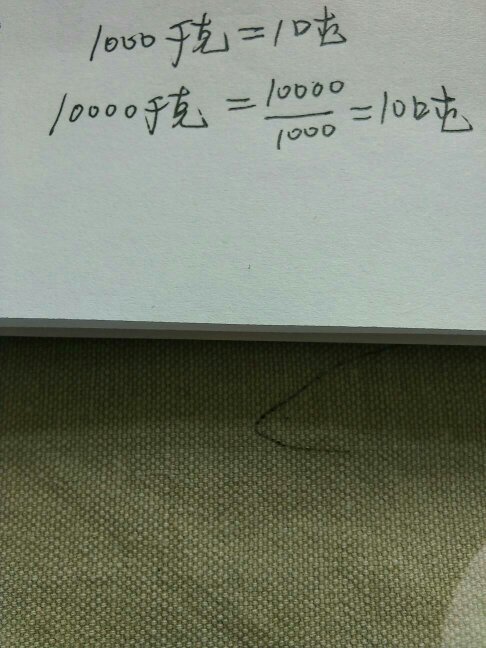 1000千克=1吨
10000千克=10000/1000=10吨